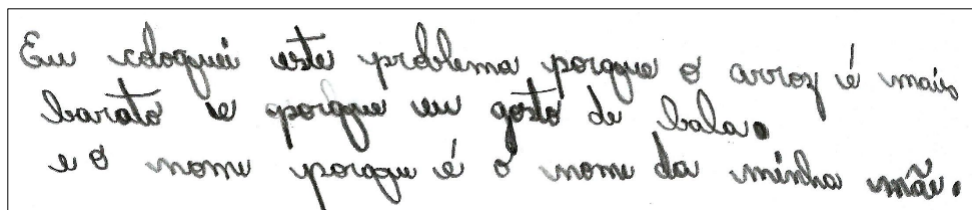 Eu coloquei este problema porque o arroz é mais
barato e porque eu gosto de bala.
e o nome porque é o nome da minha mãe.